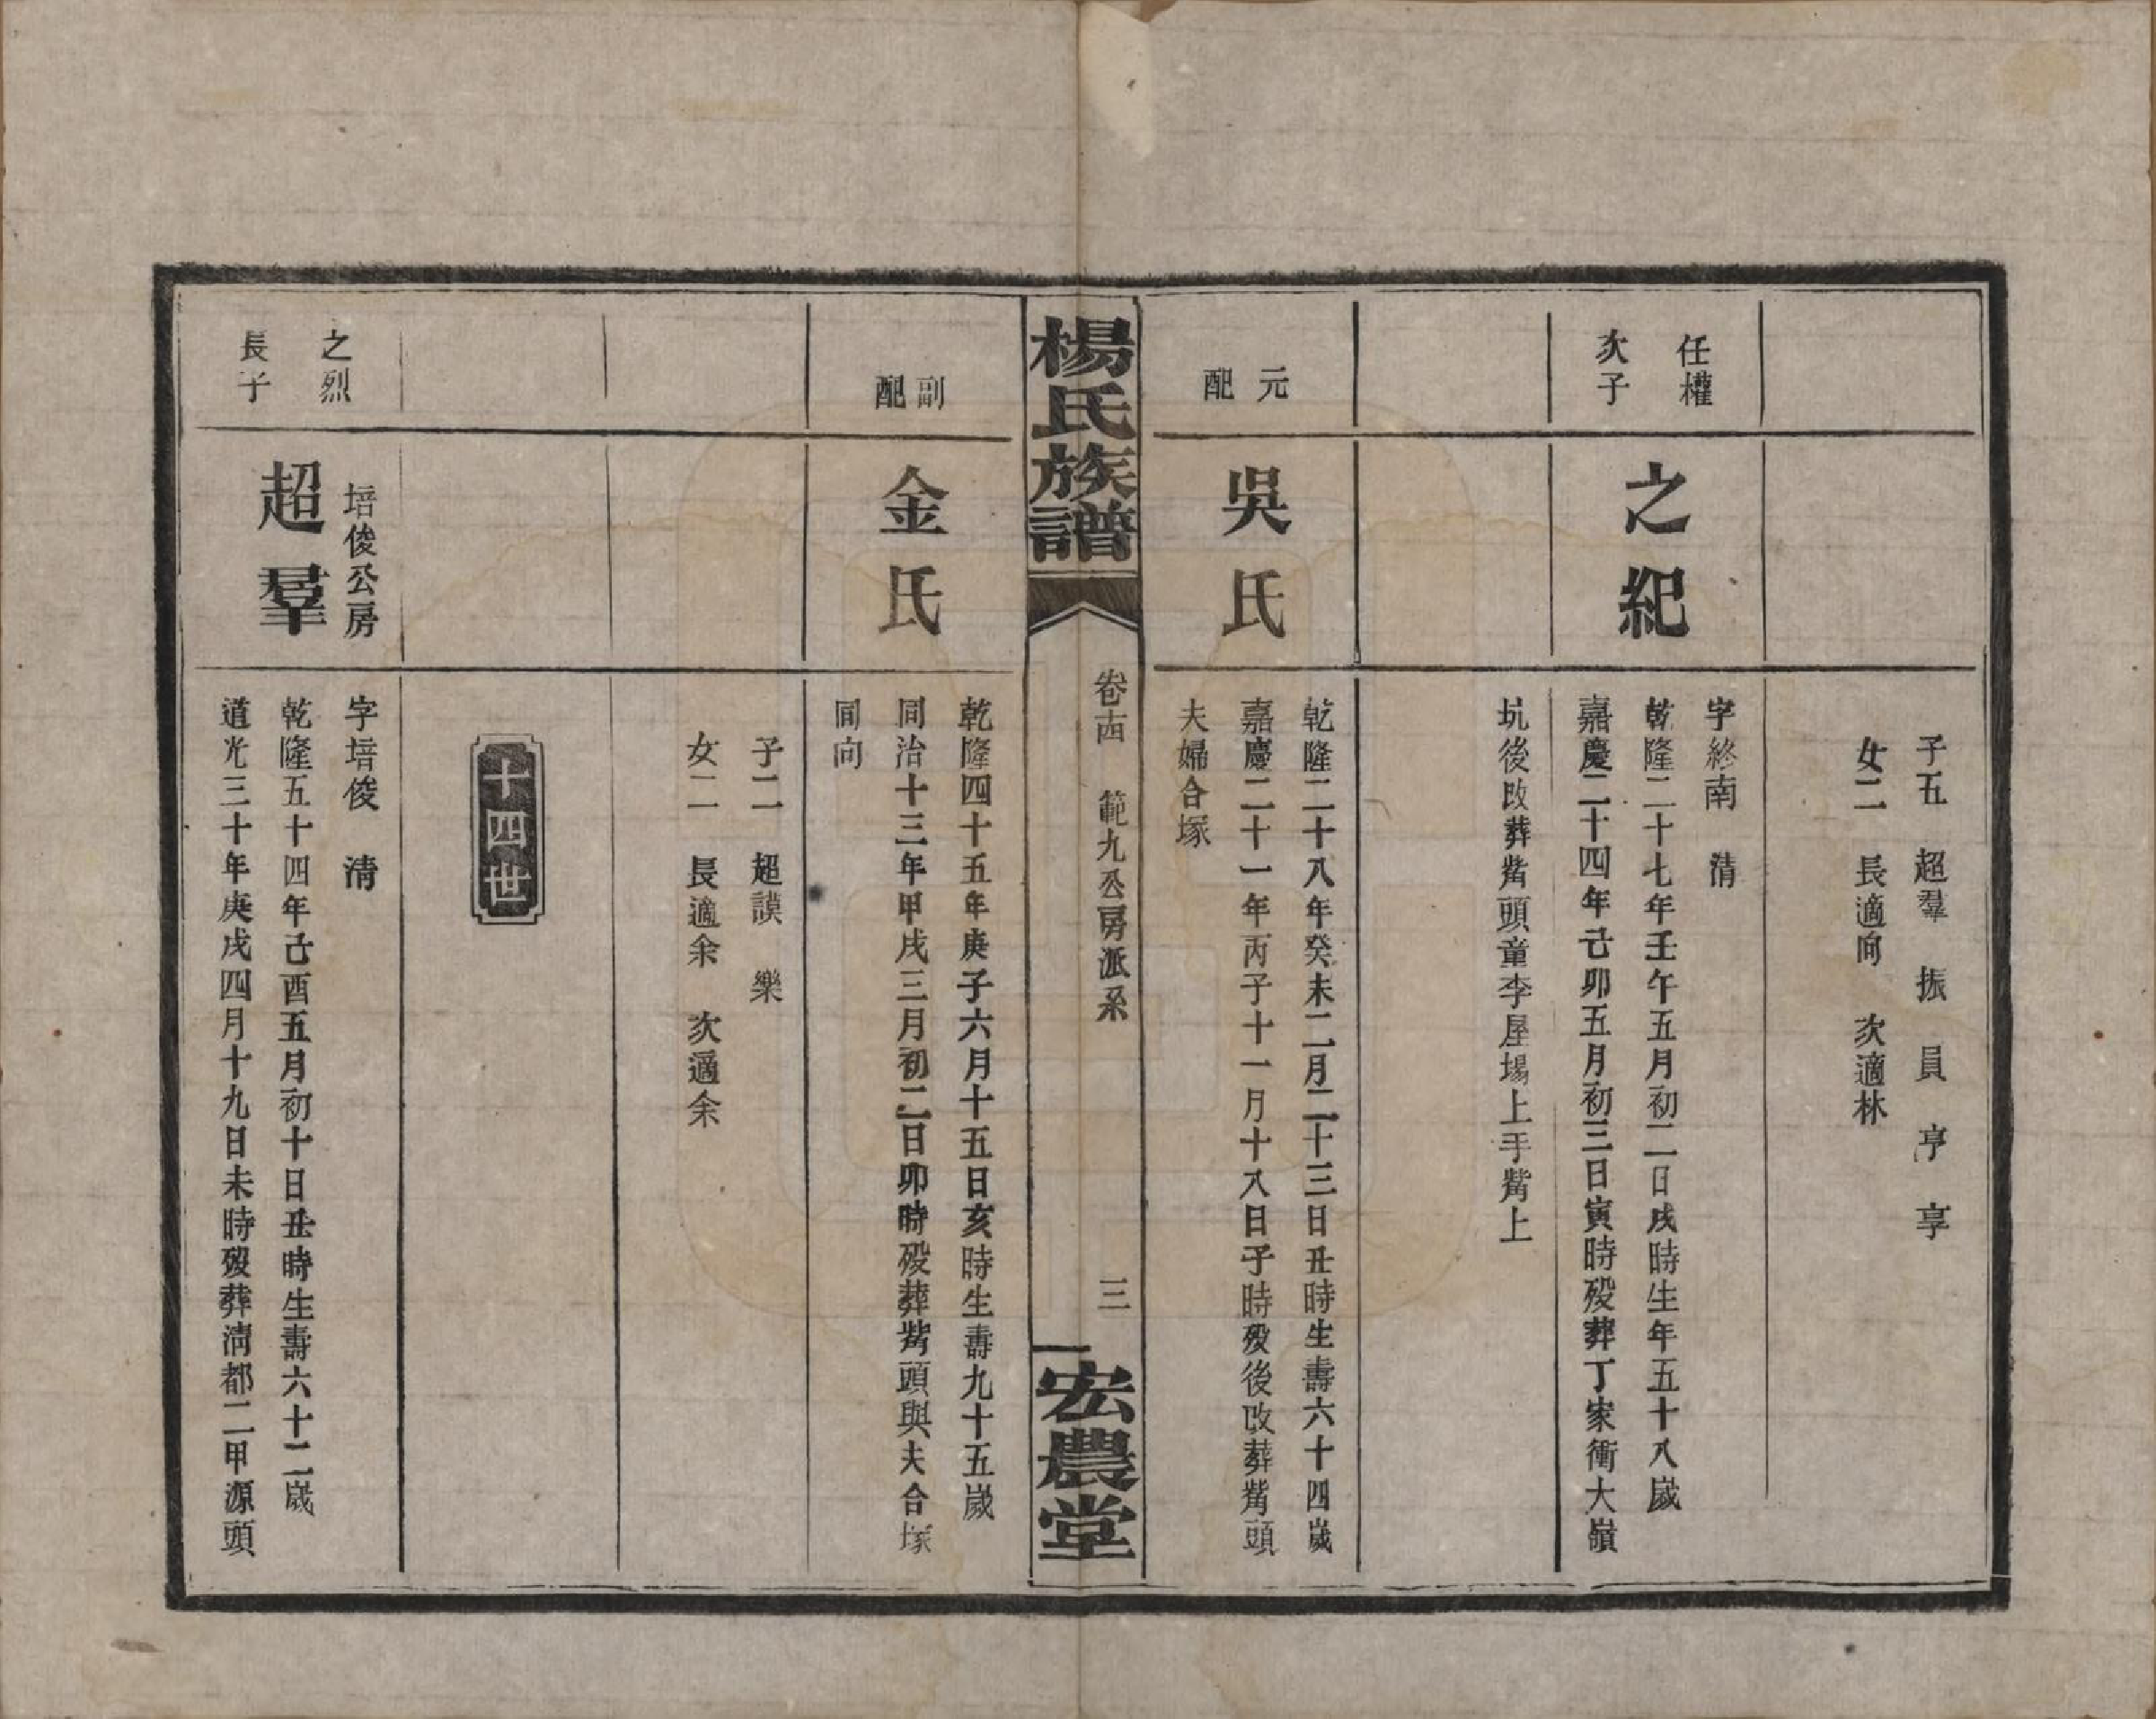 子五　超羣　振　員　亨　享
女二　長適向　次適林
任權
次子
之紀
字終南　清
乾隆二十七年壬午五月初二日戌時生年五十八歲
嘉慶二十四年己卯五月初三日寅時歿葬丁家衝大嶺
坑後改葬觜頭童李屋場上手觜上
元
配
吳氏
乾隆二十八年癸未二月二十三日丑時生壽六十四歲
嘉慶二十一年丙子十一月十八日子時歿後改葬觜頭
夫婦合塚
楊氏族譜
卷十四　範九公房派系
三
宏農堂
副
配
金氏
乾隆四十五年庚子六月十五日亥時生壽九十五歲
同治十三年甲戌三月初二日卯時歿葬觜頭與夫合塚
同向
子二　超謨　樂
女二　長適余　次適余
十四世
之烈
長子
培俊公房
超羣
字培俊　清
乾隆五十四年己酉五月初十日丑時生壽六十二歲
道光三十年庚戌四月十九日未時歿葬清都二甲源頭